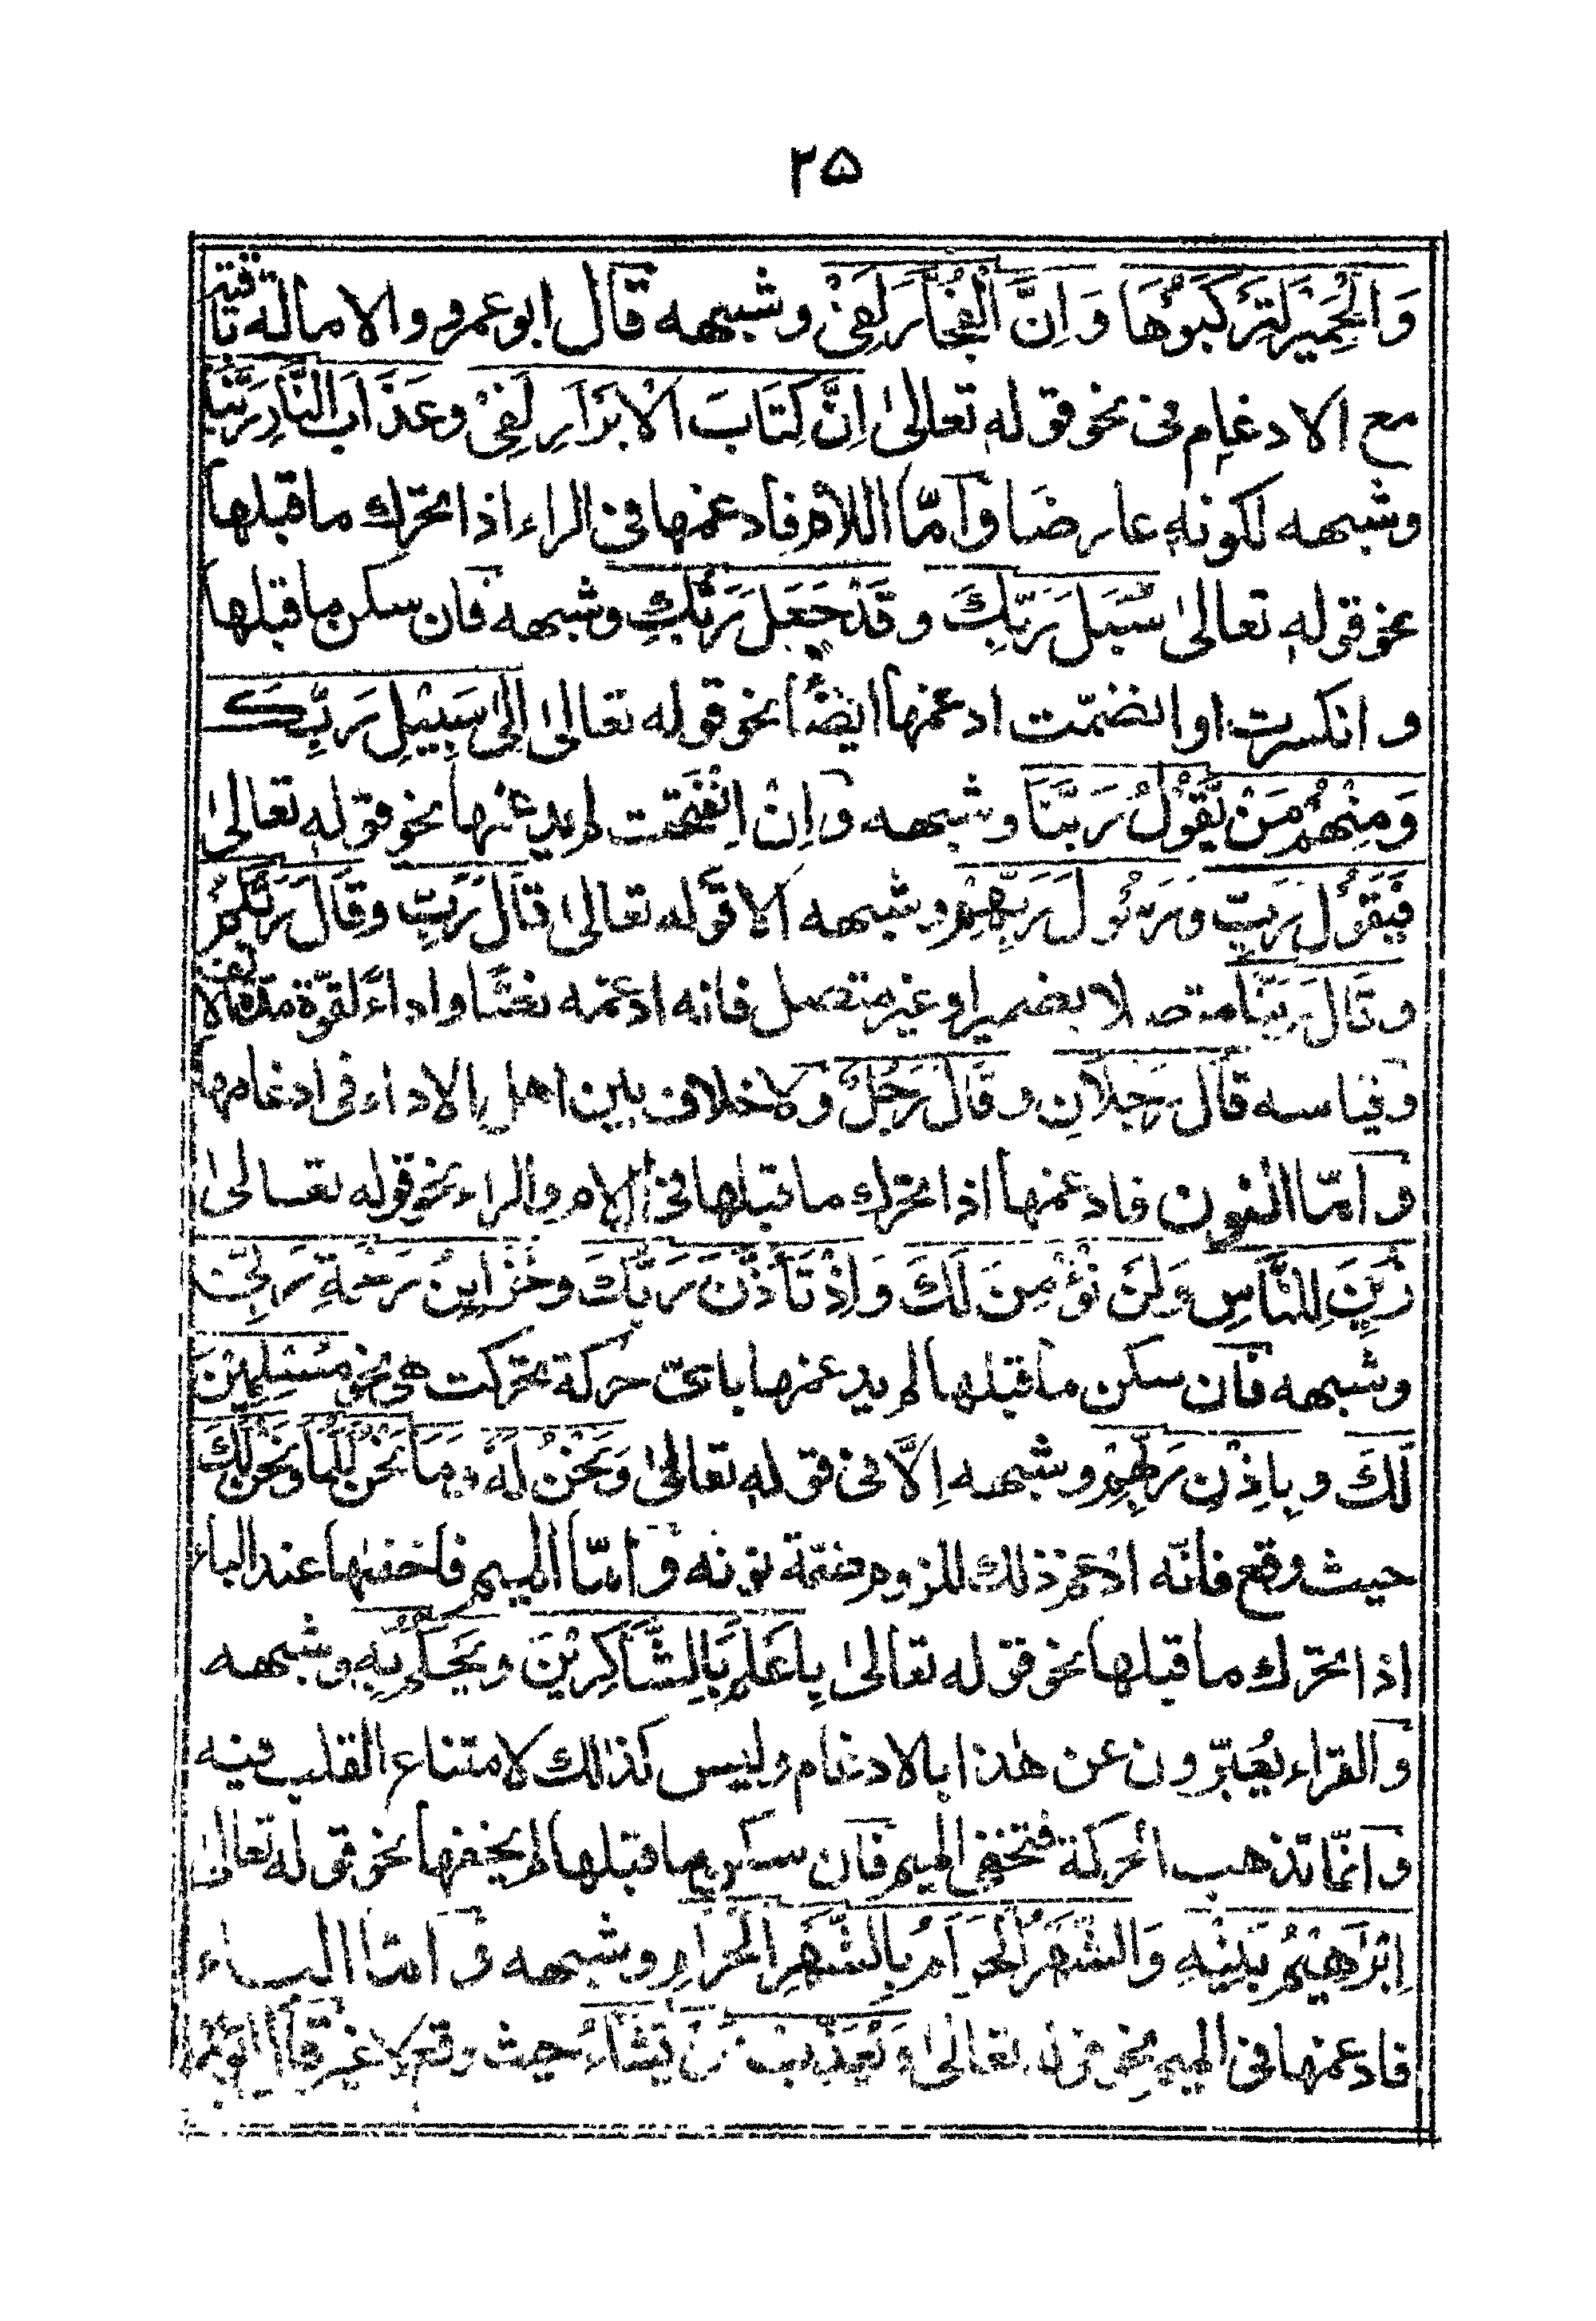 ۲۵
وَالْحَمِيْرَ لِتَرْكَبُوْهَا وَ اِنَّ الْفُجَّارَ لَفِىْ وشبهه قال ابو عمرو والامالة باقية
مع الادغام فى نحو قوله تعالىٰ اِنَّ كِتَابَ الْاَبْرَارِ لَفِىْ وعَذَابَ النَّارِ رَبَّنَا
وشبهه لكونه عارضا وَامّا اللام فادغمها فى الراء اذا تحرك ما قبلها
نحو قوله تعالىٰ سُبُلَ رَبِّكِ و قَدْ جَعَلَ رَبُّكِ وشبهه فان سكن ما قبلها
و انكسرت او انضمّت ادغمها ايضًا نحو قوله تعالىٰ اِلىٰ سَبِيْلِ رَبِّكَ
وَمِنْهُمْ مَنْ يَّقُوْلُ رَبَّنَا وشبهه و اِنْ اِنْفَتَحَت لم يدغمها نحو قوله تعالىٰ
فَيَقُوْلَ رَبِّ و رَسُوْلَ رَبِّهِمْ وشبهه الا قوله تعالىٰ قَالَ رَبِّ وقَالَ رَبُّكُمْ
و قَالَ رَبُّنَا متصلا بضمير او غير متصل فانه ادغمه نصًّا واداءً لقوّة مدة الالف
وقياسه قَالَ رَجُلَانِ و قَالَ رَجُلٌ ولا خلاف بين اهل الاداء فى ادغامها
و امّا النون فادغمها اذا تحرك ما قبلها فى اللام والراء نحو قوله تعالىٰ
زُيِّنَ لِلنَّاسِ وَلَنْ نُؤْمِنَ لَكَ وَ اِذْ تَاَذَّنَ رَبُّكَ وخَزَايِنُ رَحْمَةِ رَبِّىْ
وشبهه فان سكن ما قبلها لم يدغمها باىّ حركة تحركت هى نحو مُسْلِمَيْنِ
لَكَ و بِاِذْنِ رَبِّهِمْ وشبهه اِلَّا فى قوله تعالىٰ وَنَحْنُ لَهٗ وَ مَا نَحْنُ لَكُمَا ونَحْنُ لَكَ
حيث وقع فانّه ادغم ذلك للزوم ضمّة نونه و امّا الميم فاخفٰىها عند الباء
اذا تحرك ما قبلها نحو قوله تعالىٰ بِاَعْلَمَ بِالشَّاكِرِيْنَ و يَحْكُمُ بِهٖ وشبهه
والقراء يُعَبّرون عن هٰذا بالادغام وليس كذالك لامتناع القلب فيه
و انّما تذهب الحركة فتخفى الميم فان سكن ما قبلها لم يخفها نحو قوله تعالىٰ
اِبْرَاهِيْمُ بَنِيْهِ وَ الشَّهْرُ الْحَرَامُ بِالشَّهْرِ الْحَرَامِ وشبهه و امّا الباء
فادغمها فى الميم نحو قوله تعالىٰ وَ يُعَذِّبُ مَنْ يَّشَاءُ حيث وقع لا غير